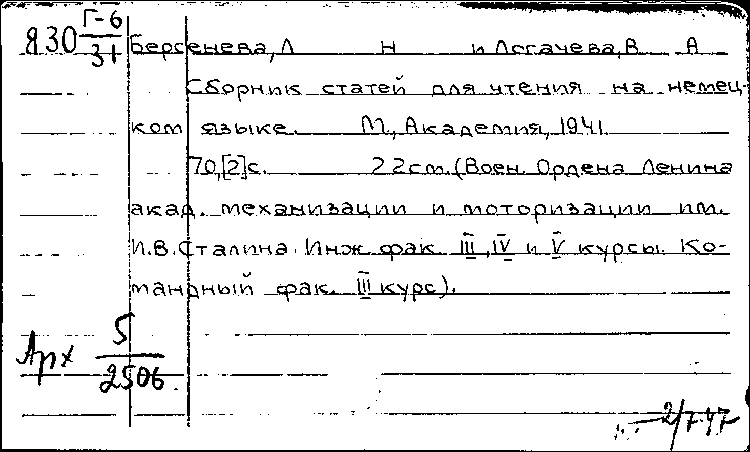 Г-6
Я30 31 Берсенева, Л Н и Логачева, В А
Сборник статей для чтения на немец-
ком языке. М, Академия, 1941.
70,[2]с. 22см. (Воен. Ордена Ленина
акад. механизации и моторизации им.
И.В.Сталина. Инж фак. III, IV и V курсы. Ко-
мандный фак. III курс).
Арх 5
2506
2/7.47